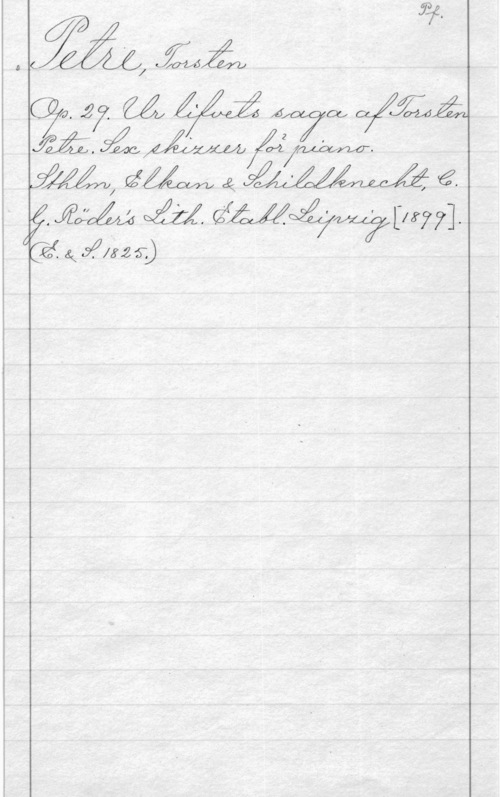 Pf.
Petre, Torsten
Op. 29. Ur lifvets saga af Torsten
Petre. Sex skizzer för piano.
Sthlm, Elkan & Schildknecht, C.
G. Röder's Lith. Etabl. Leipzig [1899].
(E. & S. 1825.)